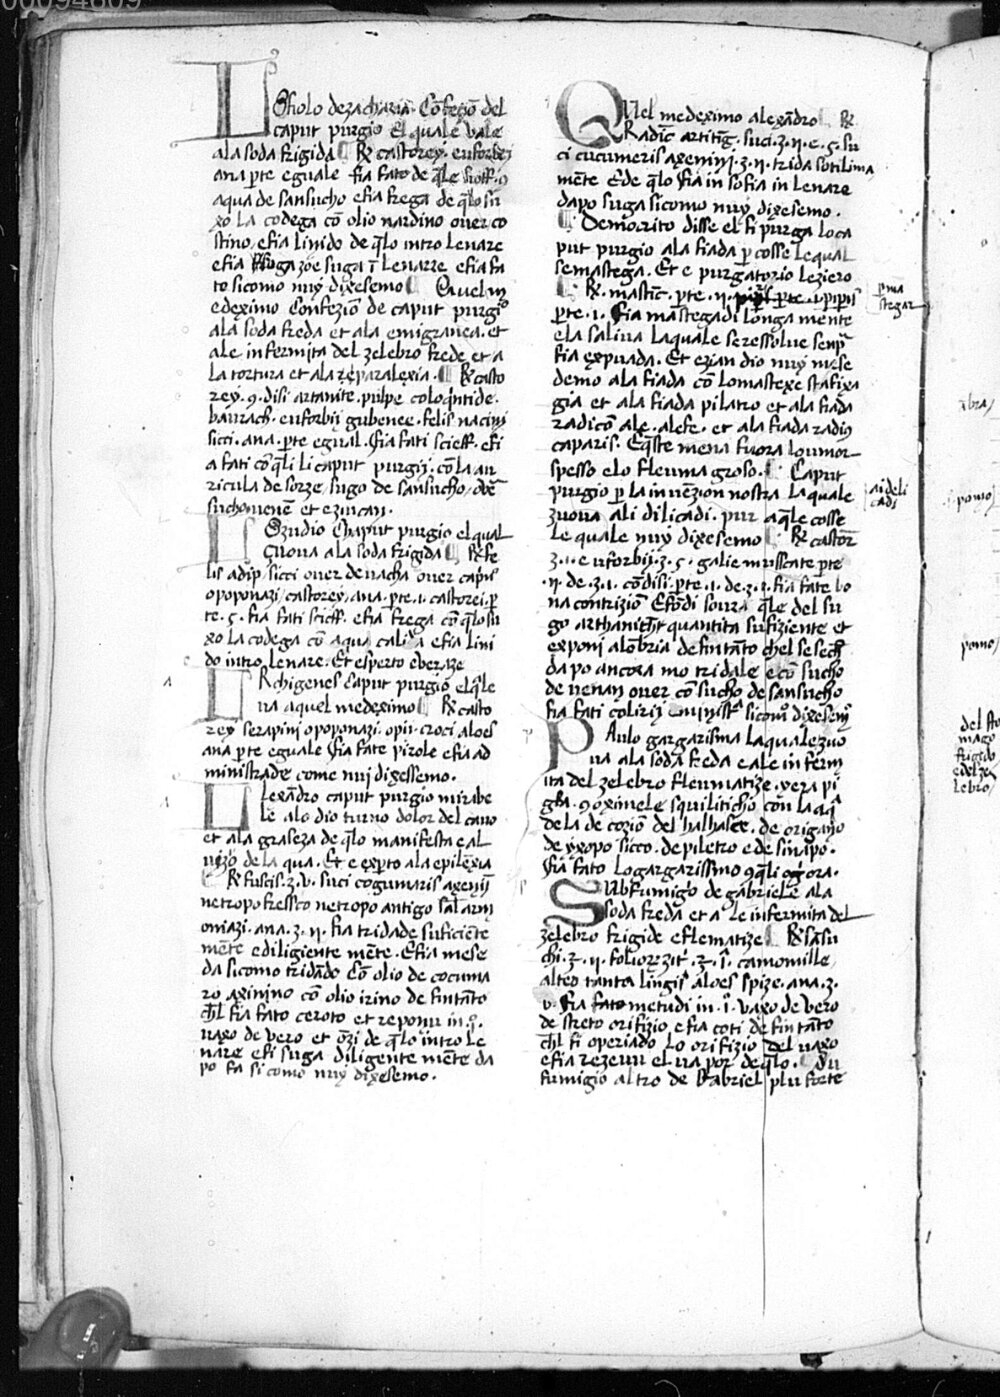 00094809
fiolo de zacharia. Cōfezio del
caput purgio el quale vale
ala soda frigida ¶ ℞ castorey. euforbij
ana pte eguale fia fato de q̄lo
aqua de sansucho e fia frega de q̄lo su
xo la codega cō olio nardino over co
stino. e fia linido de q̄lo intro le nare
e fia suga zoe suga ī le narre e fia fa
to sicomo nuy dixesemo ¶ Quel m
edeximo confezion de caput purgio
ala soda freda et ala emigranea. et
ale infermita del zelebro frede et a
la tortura et ala reparalexia. ¶ ℞ casto
rey. 9. disi artanite. pulpe coloquintide.
baurach. euforbii felis
sicci. ana. pte egual. fia fati scieff. e fi
a fati cō q̄li li caput purgij. cō la au
ricula de sorze. sugo de sansucho
suchomene et ezincan.
Ozudio Chaput purgio el qual
zuova ala soda frigida ¶ ℞ fe
lis adip. sicci over de vacha over capris
opoponazi castorey. ana. pte. i. castorei. p
te. 5. fia fati scieff. e fia frega cō q̄lo su
xo la codega cō aqua calida e fia lini
do intro lenare. Et esperto
Archigenes caput purgio el q̄le
va aquel medeximo ¶ ℞ casto
rey serapini opoponazi. opii. croci aloes
ana pte eguale fia fate pirole e fia ad
ministrade come nui digessemo.
Alexādro caput purgio mirabe
le alo dio turno dolor del cavo
et ala graseza de q̄lo manifesta e al
vizo de laqua. Et e exp̄to ala epilēxia
¶ ℞ fuscis. ʒ. v. suci cogumaris axenij
netropo fressco netropo antigo sal arm
oniazi. ana. ʒ. ii. fia tridade suficiente
mente e diligiente mente. E fia mese
da sicomo tridādo cō olio de cocuma
ro axinino cō olio irino de fintanto
chl fia fato ceroto et reponu in .i.
vaxo de vero et ōzi de q̄lo intro le
nare e fi suga diligente mente da
po fa sicomo nuy dixesemo.
Quel medeximo alexādro ¶ ℞
Radic artitē. suci. ʒ. ii. e. 5. su
ci cucumeris axenini. ʒ. ii. trida sotilima
mēte E de q̄lo fia in sofia in le nare
dapo suga sicomo nuy dixesemo.
¶ Democrito disse el si purga lo ca
put purgio ala fiada p cosse le qual
se mastega. Et e purgatorio leziero
¶ ℞. mastic. pte. ii. piperis
pte. i. fia mastegadi longa mente
e la saliva la quale se ressolve senp
fia expuada. Et ezian dio nuy mese
demo ala fiada cō lo mastexe stafixa
gia et ala fiada pilatro et ala fiada
radicō ale. alefe. et ala fiada radix
caparis. E q̄ste mena fuora lo umor
spesso e lo fleuma groso. ¶ Caput
purgio p la invēzion nostra la quale
zuova ali dilicadi. pur a q̄le cosse
le quale nuy dixesemo ¶ ℞ castor
ʒ. i. euforbij. ʒ. 5. galie musscate pte
.ii. de. ʒ. i. cōdisi. pte. i. de. ʒ. i. fia fate bo
na contrizion E fōdi sovra q̄le del su
go arthanicħ quantita sufiziente et
exponi alōbria de fintāto chel se sech
da po ancora mo tridale e cō sucho
de nenan over cō sucho de sansucho
fia fati colirij sicomo dixesemo
Paulo gargarisma la quale zuo
va ala soda freda e ale infirm
ita del zelebro fleumatize. yera pi
gra. 9 oximele squiliticho con laqa
de la de cozion del halhasce. de origano
de yxopo sicco. de piletro e de sinapo.
fia fato lo gargarissimo 9 q̄li ogi ora.
Subfumigio de gabriele ala
soda freda et a le infermita del
zelebro frigide e flematize ¶ ℞ sāsu
chi. ʒ. ii. foliorezit. ʒ. i. camomille
altea tanta lingis aloes spize. ana. ʒ.
v. fia fato metudi in. i. vaxo de vero
de streto orifizio e fia coti de fintāto
chl fi operiado lo orifizio del vaxo
e fia rezevu el vapor de q̄lo. Su
fumigio altro de Gabriel plu forte
pma
stegar
ai deli
cadi
pomo
pomo
del sto
mago
frigido
e del ze
lebro